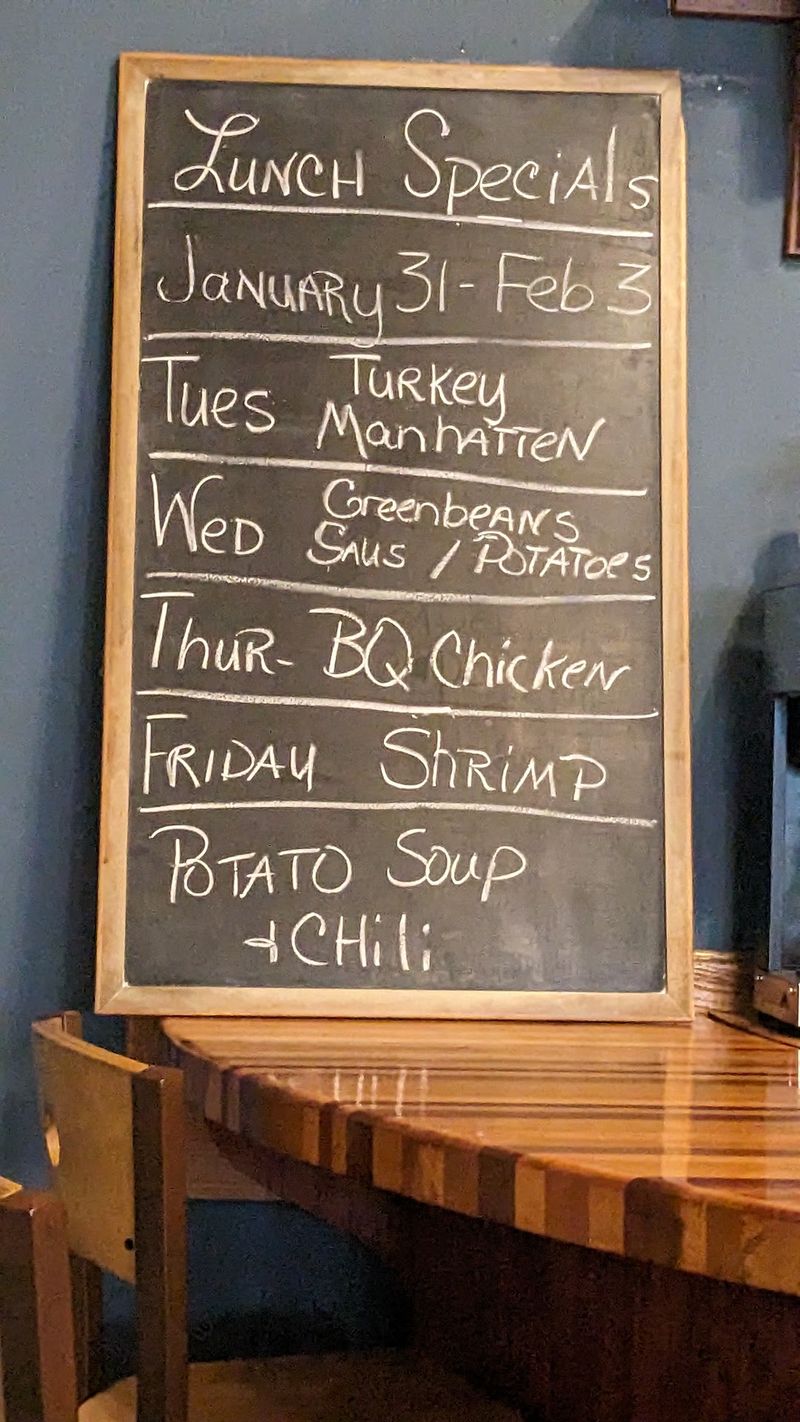 LUNCH SpeciAls
JaNUARy 31 - Feb 3
Tues TURKey
ManhATTeN
WeD GreenbeANS
SAUS / POTATOeS
ThuR- BQ ChickeN
FRIDAY ShRiMP
POTATO Soup
& CHili